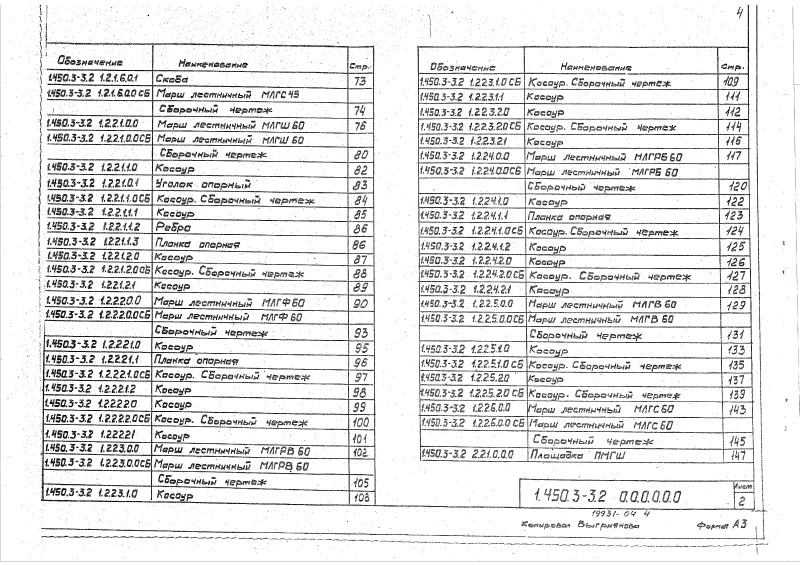 4
Обозначение Наименование Стр.
1.450.3-3.2 1.2.1.6.0.1 Скоба 73
1.450.3-3.2 1.2.1.6.0.0СБ Марш лестничный МЛГС 45
Сборочный чертеж 74
1.450.3-3.2 1.2.2.1.0.0 Марш лестничный МЛГШ 60 76
1.450.3-3.2 1.2.2.1.0.0СБ Марш лестничный МЛГШ 60
Сборочный чертеж 80
1.450.3-3.2 1.2.2.1.1.0 Косоур 82
1.450.3-3.2 1.2.2.1.0.1 Уголок опорный 83
1.450.3-3.2 1.2.2.1.1.0СБ Косоур. Сборочный чертеж 84
1.450.3-3.2 1.2.2.1.1.1 Косоур 85
1.450.3-3.2 1.2.2.1.1.2 Ребро 86
1.450.3-3.2 1.2.2.1.1.3 Планка опорная 86
1.450.3-3.2 1.2.2.1.2.0 Косоур 87
1.450.3-3.2 1.2.2.1.2.0СБ Косоур. Сборочный чертеж 88
1.450.3-3.2 1.2.2.1.2.1 Косоур 89
1.450.3-3.2 1.2.2.2.0.0 Марш лестничный МЛГФ 60 90
1.450.3-3.2 1.2.2.2.0.0СБ Марш лестничный МЛГФ 60
Сборочный чертеж 93
1.450.3-3.2 1.2.2.2.1.0 Косоур 95
1.450.3-3.2 1.2.2.2.1.1 Планка опорная 96
1.450.3-3.2 1.2.2.2.1.0СБ Косоур. Сборочный чертеж 97
1.450.3-3.2 1.2.2.2.1.2 Косоур 98
1.450.3-3.2 1.2.2.2.2.0 Косоур 99
1.450.3-3.2 1.2.2.2.2.0СБ Косоур. Сборочный чертеж 100
1.450.3-3.2 1.2.2.2.2.1 Косоур 101
1.450.3-3.2 1.2.2.3.0.0 Марш лестничный МЛГРВ 60 102
1.450.3-3.2 1.2.2.3.0.0СБ Марш лестничный МЛГРВ 60
Сборочный чертеж 105
1.450.3-3.2 1.2.2.3.1.0 Косоур 108
Обозначение Наименование Стр.
1.450.3-3.2 1.2.2.3.1.0СБ Косоур. Сборочный чертеж 109
1.450.3-3.2 1.2.2.3.1.1 Косоур 111
1.450.3-3.2 1.2.2.3.2.0 Косоур 112
1.450.3-3.2 1.2.2.3.2.0СБ Косоур. Сборочный чертеж 114
1.450.3-3.2 1.2.2.3.2.1 Косоур 116
1.450.3-3.2 1.2.2.4.0.0 Марш лестничный МЛГРБ 60 117
1.450.3-3.2 1.2.2.4.0.0СБ Марш лестничный МЛГРБ 60
Сборочный чертеж 120
1.450.3-3.2 1.2.2.4.1.0 Косоур 122
1.450.3-3.2 1.2.2.4.1.1 Планка опорная 123
1.450.3-3.2 1.2.2.4.1.0СБ Косоур. Сборочный чертеж 124
1.450.3-3.2 1.2.2.4.1.2 Косоур 125
1.450.3-3.2 1.2.2.4.2.0 Косоур 126
1.450.3-3.2 1.2.2.4.2.0СБ Косоур. Сборочный чертеж 127
1.450.3-3.2 1.2.2.4.2.1 Косоур 128
1.450.3-3.2 1.2.2.5.0.0 Марш лестничный МЛГВ 60 129
1.450.3-3.2 1.2.2.5.0.0СБ Марш лестничный МЛГВ 60
Сборочный чертеж 131
1.450.3-3.2 1.2.2.5.1.0 Косоур 133
1.450.3-3.2 1.2.2.5.1.0СБ Косоур. Сборочный чертеж 135
1.450.3-3.2 1.2.2.5.2.0 Косоур 137
1.450.3-3.2 1.2.2.5.2.0СБ Косоур. Сборочный чертеж 139
1.450.3-3.2 1.2.2.6.0.0 Марш лестничный МЛГС 60 143
1.450.3-3.2 1.2.2.6.0.0СБ Марш лестничный МЛГС 60
Сборочный чертеж 145
1.450.3-3.2 2.2.1.0.0.0 Площадка ПМГШ 147
1.450.3-3.2 0.0.0.0.0.0 Лист 2
19931-04 4
Копировал Выгринкова Формат А3